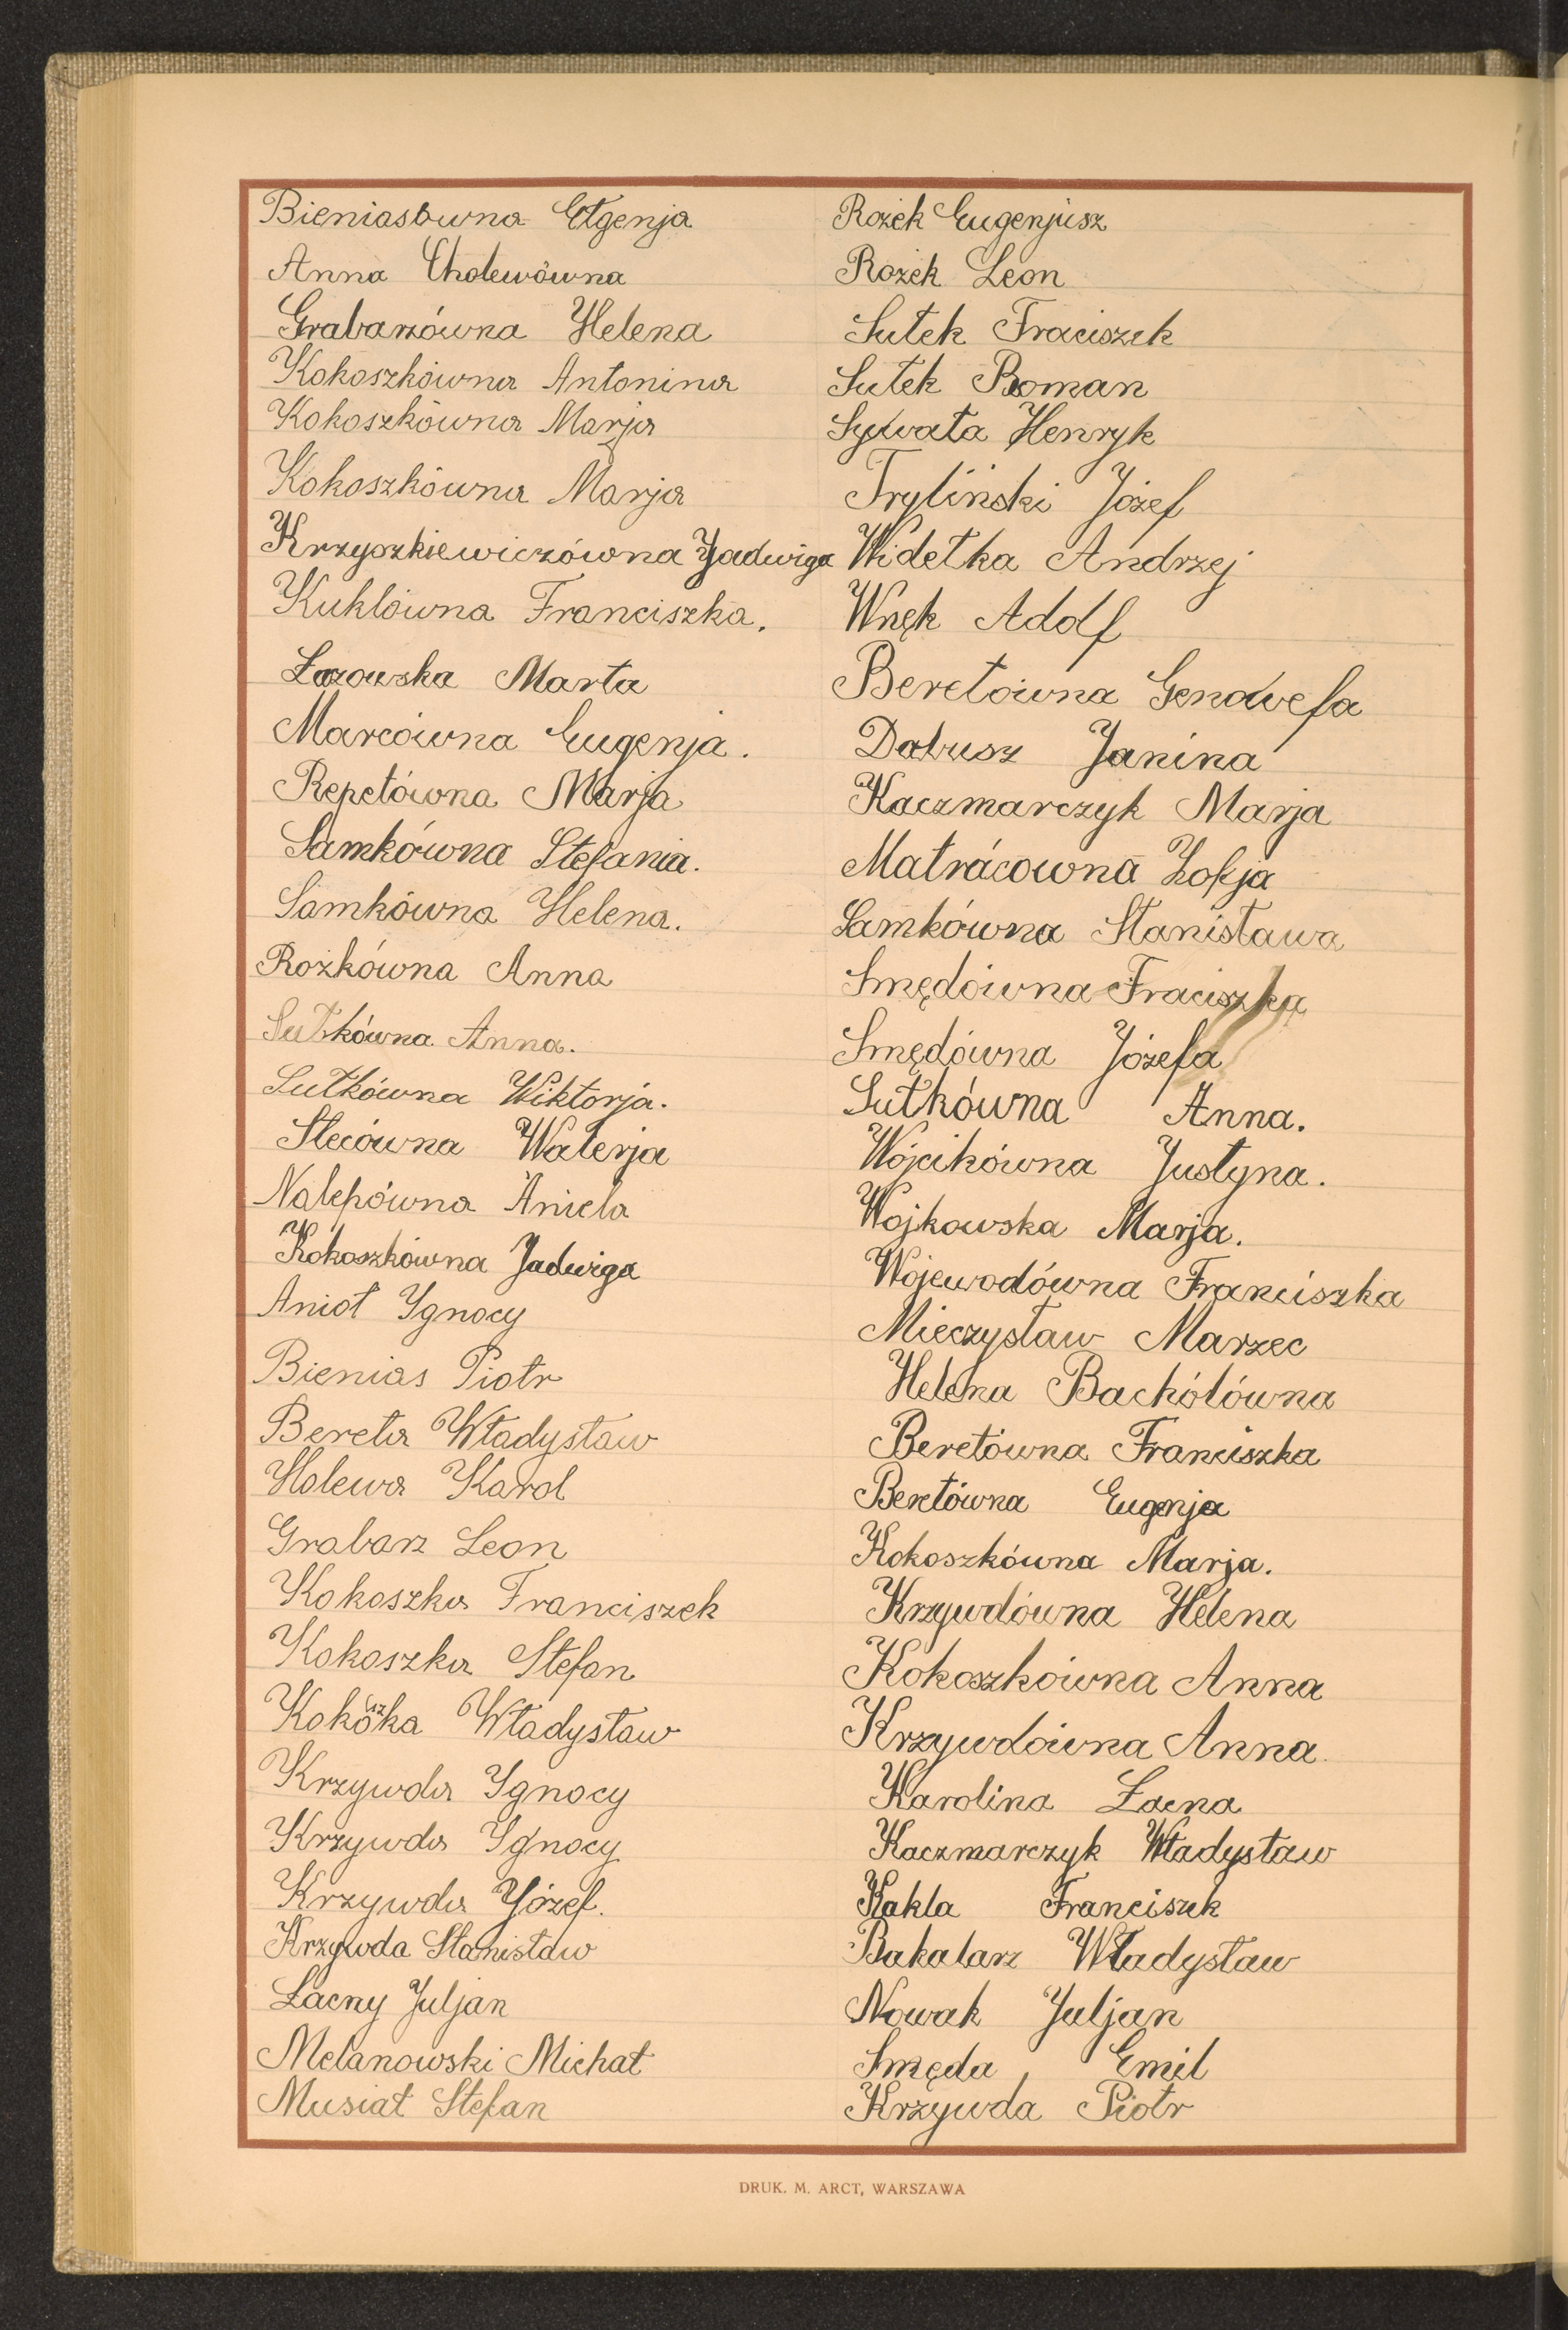 Bieniasówna Eugenja
Anna Cholewówna
Grabarzówna Helena
Kokoszkówna Antonina
Kokoszkówna Marja
Kokoszkówna Marja
Krzyszkiewiczówna Jadwiga
Kuklówna Franciszka.
Łazowska Marta
Marcówna Eugenja.
Repetówna Marja
Samkówna Stefania.
Samkówna Helena.
Rożkówna Anna
Sutkówna Anna.
Sutkówna Wiktorja.
Stecówna Walerja
Nalepówna Aniela
Kokoszkówna Jadwiga
Anioł Ygnocy
Bienias Piotr
Bereta Władysław
Holewa Karol
Grabarz Leon
Kokoszka Franciszek
Kokoszka Stefan
Kokoszka Władysław
Krzywda Ygnocy
Krzywda Ygnocy
Krzywda Józef.
Krzywda Stanisław
Łacny Juljan
Melanowski Michał
Musiał Stefan
Rożek Eugenjusz
Rożek Leon
Sutek Fraciszek
Sutek Roman
Sywata Henryk
Tryliński Józef
Widełka Andrzej
Wnęk Adolf
Beretówna Genowefa
Dabusz Janina
Kaczmarczyk Marja
Matrácowna Zofja
Samkówna Stanisława
Smędówna Fraciszka
Smędówna Józefa
Sutkówna Anna.
Wójcikówna Justyna.
Wojkowska Marja.
Wojewodówna Franciszka
Mieczysław Marzec
Helena Bachólówna
Beretówna Franciszka
Beretówna Eugenja
Kokoszkówna Marja.
Krzywdówna Helena
Kokoszkówna Anna
Krzywdówna Anna
Karolina Łacna
Kaczmarczyk Władysław
Kakla Franciszek
Bakalarz Władysław
Nowak Juljan
Smęda Emil
Krzywda Piotr
DRUK. M. ARCT, WARSZAWA